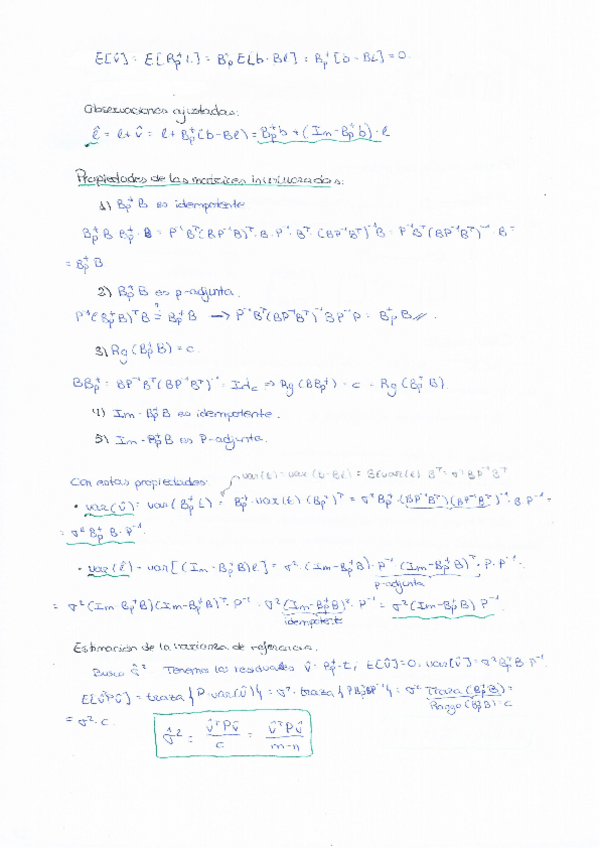 E[v̂] = E[Bp⁺t] = Bp⁺E[b-Bl] = Bp⁺[b-Bl] = 0.
Observaciones ajustadas:
l̂ = l+v̂ = l+Bp⁺(b-Bl) = Bp⁺b+(Im-Bp⁺b)·l
Propiedades de las matrices
1) Bp⁺B es idempotente
Bp⁺B Bp⁺·B = P⁻¹Bᵀ(BP⁻¹Bᵀ)⁻¹·B·P⁻¹·Bᵀ·(BP⁻¹Bᵀ)⁻¹B = P⁻¹Bᵀ(BP⁻¹Bᵀ)⁻¹·B =
= Bp⁺B
2) Bp⁺B es p-adjunta.
P⁻¹(Bp⁺B)ᵀB ≟ Bp⁺B → P⁻¹Bᵀ(BP⁻¹Bᵀ)⁻¹BP⁻¹P = Bp⁺B //.
3) Rg(Bp⁺B) = c.
BBp⁺ = BP⁻¹Bᵀ(BP⁻¹Bᵀ)⁻¹ = Idc ⇒ Rg(BBp⁺) = c = Rg(Bp⁺B).
4) Im-Bp⁺B es idempotente.
5) Im-Bp⁺B es P-adjunta.
Con estas propiedades: var(t) = var(b-Bl) = B var(l) Bᵀ = σ²BP⁻¹Bᵀ
• var(v̂) = var(Bp⁺t) = Bp⁺·var(t)·(Bp⁺)ᵀ = σ²Bp⁺·(BP⁻¹Bᵀ)(BP⁻¹Bᵀ)⁻¹·B P⁻¹ =
= σ²Bp⁺B·P⁻¹.
• var(l̂) = var[(Im-Bp⁺B)l] = σ²·(Im-Bp⁺B)·P⁻¹·(Im-Bp⁺B)ᵀ·P·P⁻¹ =
p-adjunta
= σ²(Im-Bp⁺B)(Im-Bp⁺B)ᵀ·P⁻¹ = σ²(Im-Bp⁺B)²·P⁻¹ = σ²(Im-Bp⁺B)P⁻¹.
idempotente
Estimación de la varianza de referencia.
Busco σ̂² Tenemos los residuales v̂ = Bp⁺·t; E[v̂]=0, var[v̂] = σ²Bp⁺B P⁻¹.
E[v̂ᵀPv̂] = traza{P·var(v̂)} = σ²·traza{PBp⁺BP⁻¹} = σ² Traza(Bp⁺B) =
Rango(Bp⁺B) = c
= σ²·c.
σ̂² = v̂ᵀPv̂ / c = v̂ᵀPv̂ / m-n